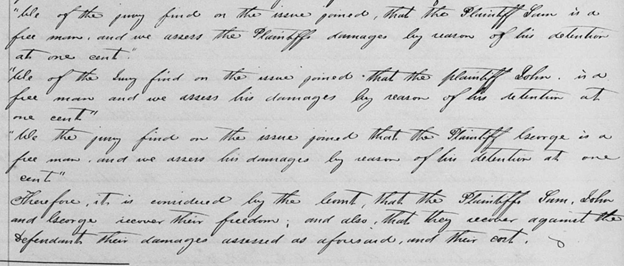 "We of the jury find on the issue joined, that the Plaintiff Sam is a
free man, and we assess the Plaintiffs damages by reason of his detention
at one cent".
"We of the Jury find on the issue joined that the plaintiff John. is a
free man and we assess his damages by reason of his detention at
one cent"
"We the jury find on the issue joined that the Plaintiff George is a
free man. and we assess his damages by reason of his detention at one
cent"
Therefore, it is considered by the Court, that the Plaintiffs Sam, John
and George recover their freedom; and also, that they recover against the
Defendants their damages assessed as aforesaid, and their cost.